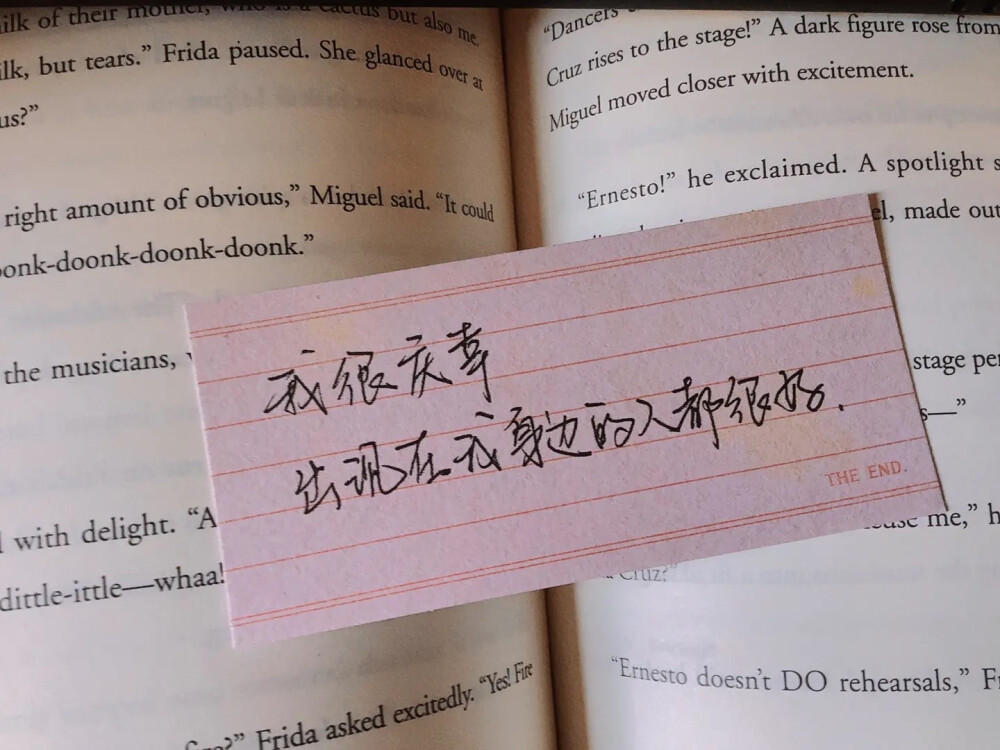 ilk of their mother, who is a cactus but also me.
ilk, but tears.” Frida paused. She glanced over at
us?”
right amount of obvious,” Miguel said. “It could
oonk-doonk-doonk-doonk.”
the musicians,
with delight. “A
dittle-ittle—whaa!
Frida asked excitedly. “Yes! Fire
“Dancers
Cruz rises to the stage!” A dark figure rose from
Miguel moved closer with excitement.
“Ernesto!” he exclaimed. A spotlight s
el, made out
stage per
s—”
me,” h
Cruz?”
“Ernesto doesn’t DO rehearsals,” Fr
我很庆幸
出现在我身边的人都很好.
THE END.